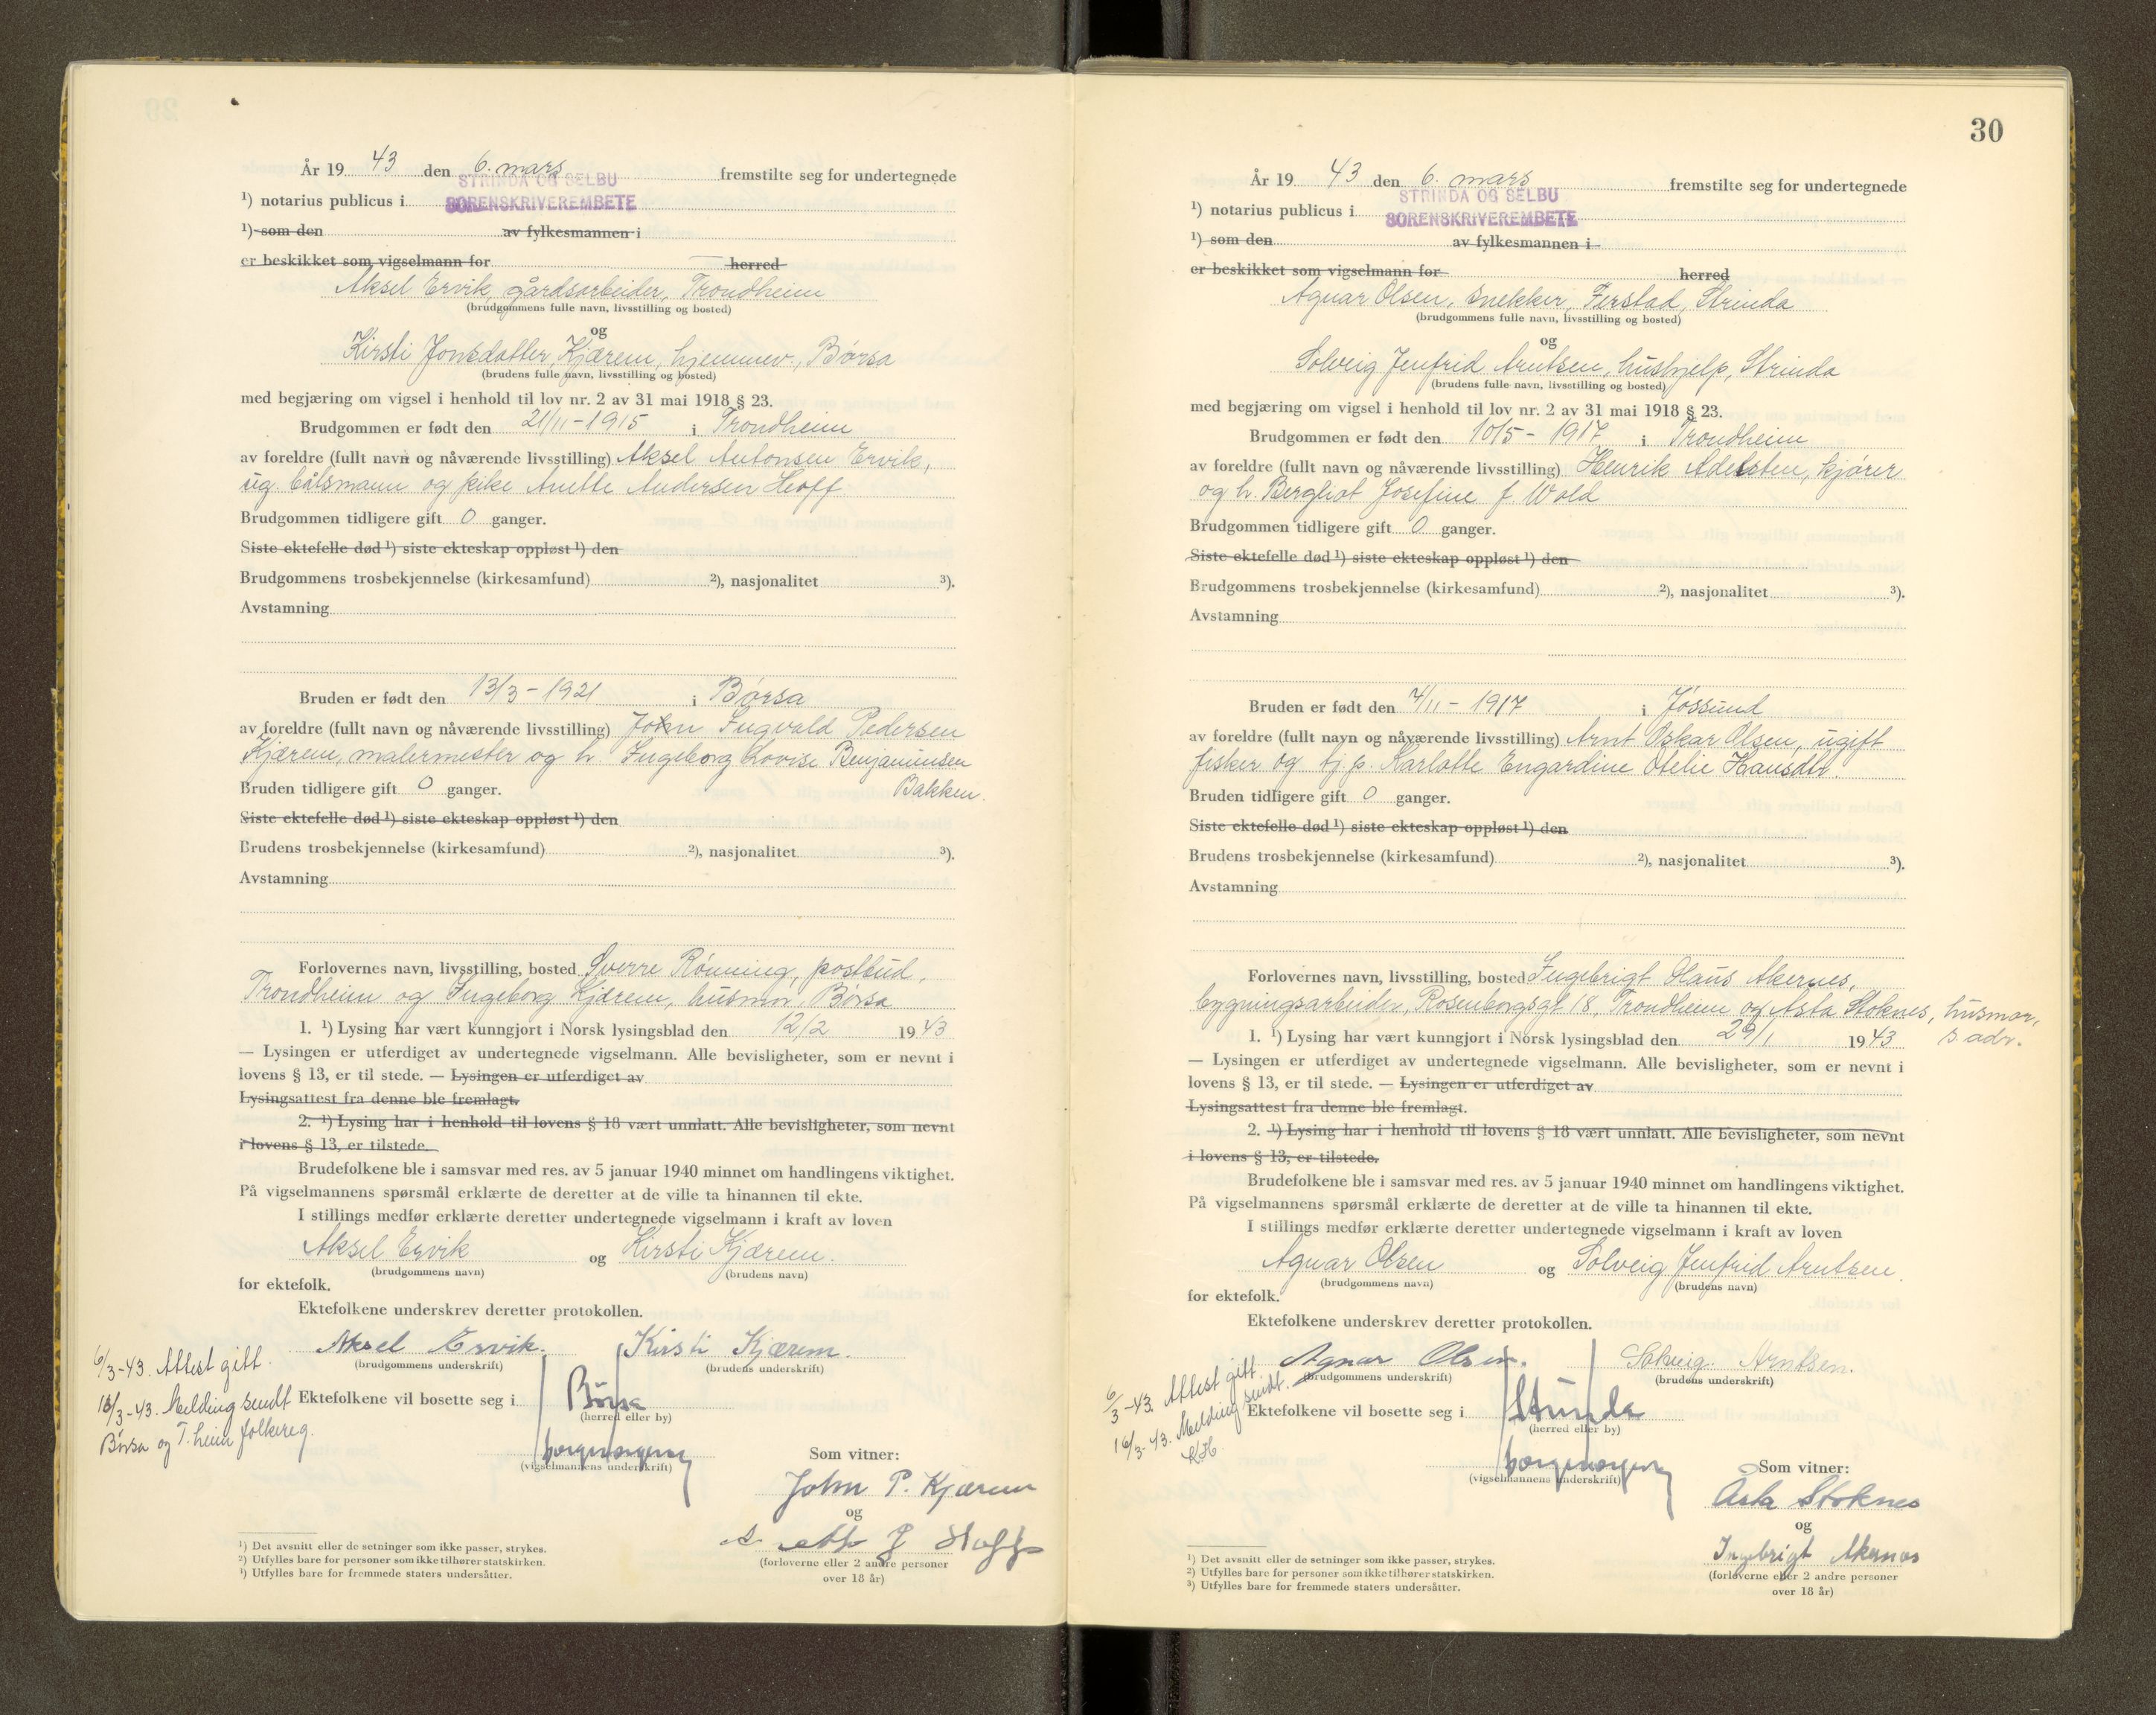 År 19 43 den 6. mars fremstilte seg for undertegnede
STRINDA OG SELBU
¹) notarius publicus i SORENSKRIVEREMBETE
¹) som den av fylkesmannen i
er beskikket som vigselmann for herred
Aksel Ervik, gårdsarbeider, Trondheim
(brudgommens fulle navn, livsstilling og bosted)
og
Kirsti Jonsdatter Kjærem, hjemmev., Børsa
(brudens fulle navn, livsstilling og bosted)
med begjæring om vigsel i henhold til lov nr. 2 av 31 mai 1918 § 23.
Brudgommen er født den 21/11-1915 i Trondheim
av foreldre (fullt navn og nåværende livsstilling) Aksel Antonsen Ervik,
ug. båtsmann og pike Anette Andersen Hoff
Brudgommen tidligere gift 0 ganger.
Siste ektefelle død ¹) siste ekteskap oppløst ¹) den
Brudgommens trosbekjennelse (kirkesamfund) ²), nasjonalitet ³).
Avstamning
Bruden er født den 13/3-1921 i Børsa
av foreldre (fullt navn og nåværende livsstilling) John Ingvald Pedersen
Kjærem, malermester og h. Ingeborg Lovise Benjaminsen
Bruden tidligere gift 0 ganger. Bakken.
Siste ektefelle død ¹) siste ekteskap oppløst ¹) den
Brudens trosbekjennelse (kirkesamfund) ²), nasjonalitet ³).
Avstamning
Forlovernes navn, livsstilling, bosted Sverre Rønning, postbud,
Trondheim og Ingeborg Kjærem, husmor, Børsa
1. ¹) Lysing har vært kunngjort i Norsk lysingsblad den 12/2 1943
— Lysingen er utferdiget av undertegnede vigselmann. Alle bevisligheter, som er nevnt i
lovens § 13, er til stede. — Lysingen er utferdiget av
Lysingsattest fra denne ble fremlagt.
2. ¹) Lysing har i henhold til lovens § 18 vært unnlatt. Alle bevisligheter, som nevnt
i lovens § 13, er tilstede.
Brudefolkene ble i samsvar med res. av 5 januar 1940 minnet om handlingens viktighet.
På vigselmannens spørsmål erklærte de deretter at de ville ta hinannen til ekte.
I stillings medfør erklærte deretter undertegnede vigselmann i kraft av loven
Aksel Ervik og Kirsti Kjærem.
(brudgommens navn) (brudens navn)
for ektefolk.
Ektefolkene underskrev deretter protokollen.
Aksel Ervik. Kirsti Kjærem.
(brudgommens underskrift) (brudens underskrift)
6/3-43. Attest gitt.
16/3-43. Melding sendt
Børsa og T.heim folkereg.
Ektefolkene vil bosette seg i Børsa
(herred eller by)
(vigselmannens underskrift)
Som vitner:
John P. Kjærem
og
Hoff
(forloverne eller 2 andre personer
over 18 år)
¹) Det avsnitt eller de setninger som ikke passer, strykes.
²) Utfylles bare for personer som ikke tilhører statskirken.
¹) Utfylles bare for fremmede staters undersåtter.
30
År 19 43 den 6. mars fremstilte seg for undertegnede
STRINDA OG SELBU
¹) notarius publicus i SORENSKRIVEREMBETE
¹) som den av fylkesmannen i
er beskikket som vigselmann for herred
Agnar Olsen, snekker, Ferstad, Strinda
(brudgommens fulle navn, livsstilling og bosted)
og
Solveig Jenfrid Arntsen, hushjelp, Strinda
(brudens fulle navn, livsstilling og bosted)
med begjæring om vigsel i henhold til lov nr. 2 av 31 mai 1918 § 23.
Brudgommen er født den 10/5-1917 i Trondheim
av foreldre (fullt navn og nåværende livsstilling) Henrik Adelsten, kjører
og h. Bergliot Josefine f Wold
Brudgommen tidligere gift 0 ganger.
Siste ektefelle død ¹) siste ekteskap oppløst ¹) den
Brudgommens trosbekjennelse (kirkesamfund) ²), nasjonalitet ³).
Avstamning
Bruden er født den 4/11-1917 i Jøssund
av foreldre (fullt navn og nåværende livsstilling) Arnt Oskar Olsen, ugift
fisker og tj.p. Karlotte Engardine Otelie Hansdtr.
Bruden tidligere gift 0 ganger.
Siste ektefelle død ¹) siste ekteskap oppløst ¹) den
Brudens trosbekjennelse (kirkesamfund) ²), nasjonalitet ³).
Avstamning
Forlovernes navn, livsstilling, bosted Ingebrigt Olaus Akernes,
bygningsarbeider, Rosenborgsgt 18, Trondheim og Asta Stoknes, husmor,
s. adr.
1. ¹) Lysing har vært kunngjort i Norsk lysingsblad den 29/1 1943
— Lysingen er utferdiget av undertegnede vigselmann. Alle bevisligheter, som er nevnt i
lovens § 13, er til stede. — Lysingen er utferdiget av
Lysingsattest fra denne ble fremlagt.
2. ¹) Lysing har i henhold til lovens § 18 vært unnlatt. Alle bevisligheter, som nevnt
i lovens § 13, er tilstede.
Brudefolkene ble i samsvar med res. av 5 januar 1940 minnet om handlingens viktighet.
På vigselmannens spørsmål erklærte de deretter at de ville ta hinannen til ekte.
I stillings medfør erklærte deretter undertegnede vigselmann i kraft av loven
Agnar Olsen og Solveig Jenfrid Arntsen.
(brudgommens navn) (brudens navn)
for ektefolk.
Ektefolkene underskrev deretter protokollen.
Agnar Olsen. Solveig Arntsen.
(brudgommens underskrift) (brudens underskrift)
6/3-43. Attest gitt.
16/3-43. Melding sendt.
Ektefolkene vil bosette seg i Strinda
(herred eller by)
(vigselmannens underskrift)
Som vitner:
Åsta Stoknes
og
Ingebrigt Akernes
(forloverne eller 2 andre personer
over 18 år)
¹) Det avsnitt eller de setninger som ikke passer, strykes.
²) Utfylles bare for personer som ikke tilhører statskirken.
³) Utfylles bare for fremmede staters undersåtter.